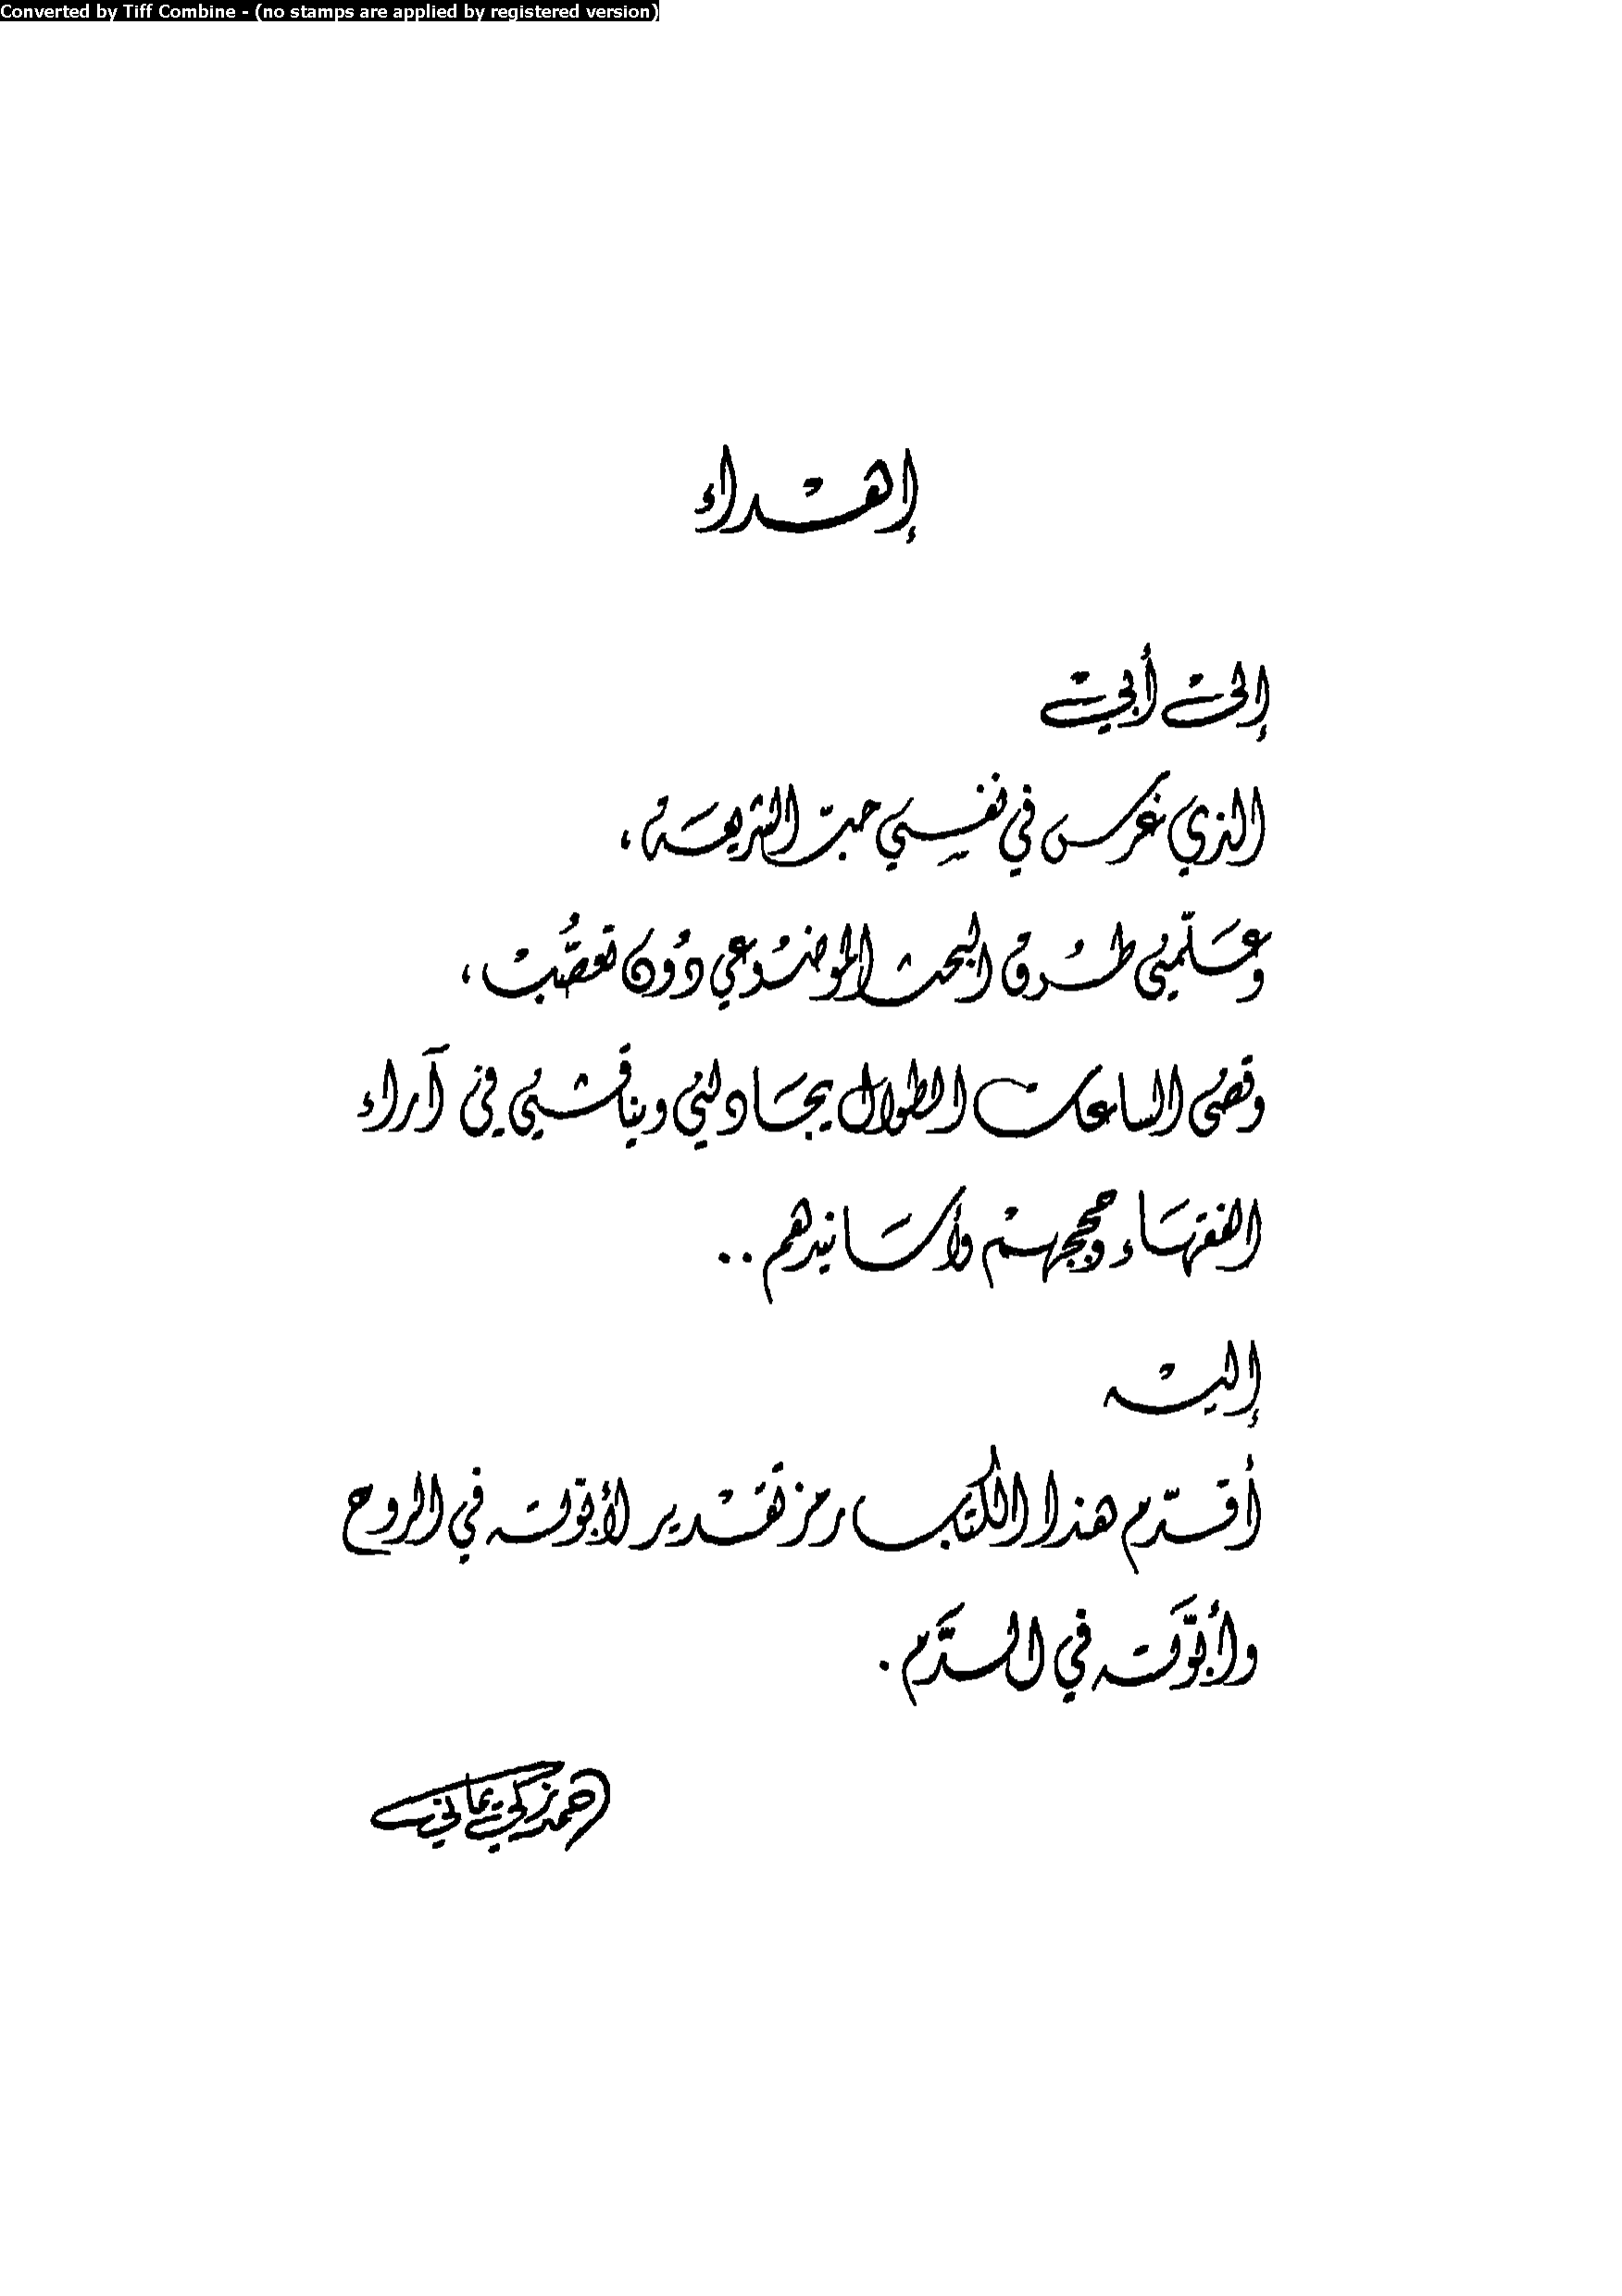 Converted by Tiff Combine - (no stamps are applied by registered version)
إهداء
إلى أبي
الذي غرس في نفسي حبّ الشريعة ،
وعلّمني طرق البحث الموضوعي دُون تعصّب ،
وقضى الساعات الطوال يجادلني ويناقشني في آراء
الفقهاء وحججهم وأسانيدهم ..
إليه
أقدّم هذا الكتاب رمز تقدير لأبوّته في الروح
وأبوّته في الدّم .
أحمد زكي يماني